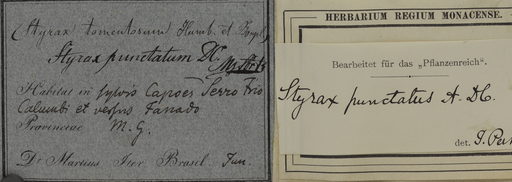 (Styrax tomentosum Humb. et Bonpl.)
Styrax punctatum DC.
Habitat in sylvis Capões Serro Frio
Calumbi et versus Fanado
Provinciae M. G.
Dr Martius Iter Brasil. Jun.
HERBARIUM REGIUM MONACENSE.
Bearbeitet für das „Pflanzenreich“.
Styrax punctatus A. DC.
det. J. Per